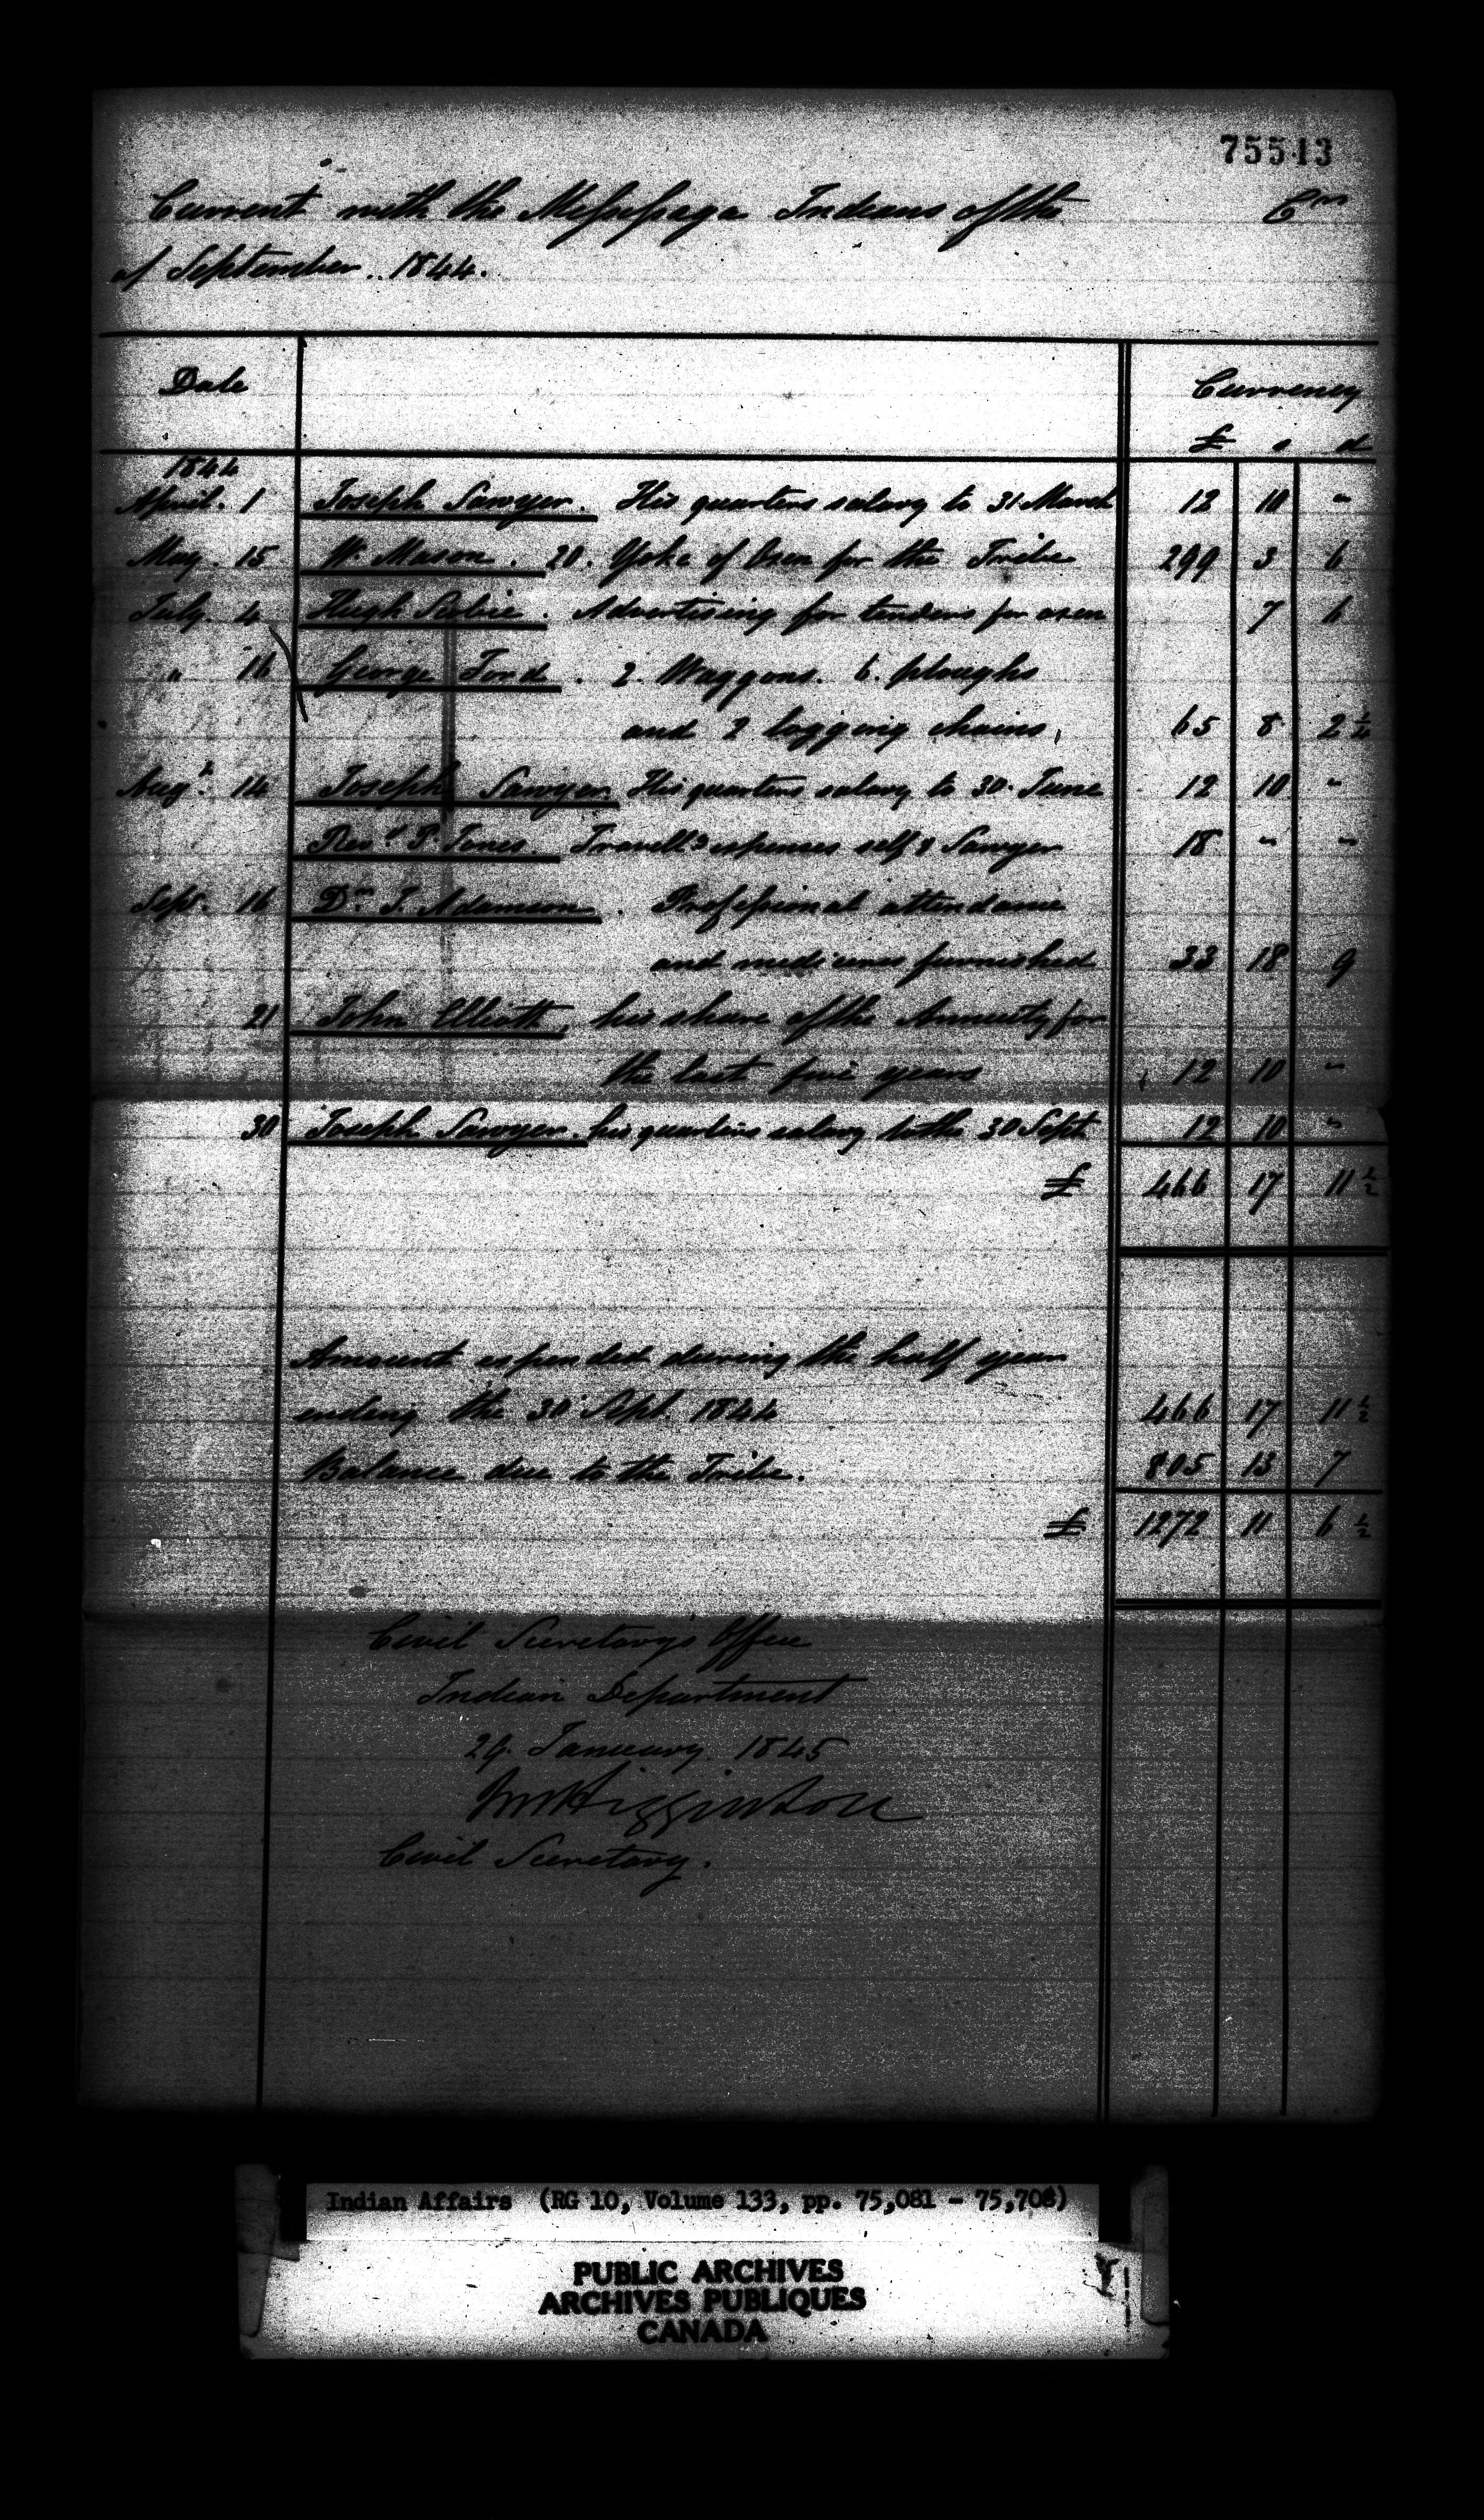 75513
Current with the Missisaga Indians of the Cr
of September 1844.
Date Currency
£ s d
1844
April. 1 Joseph Sawyer. His quarters salary to 31 March 12 10 -
May. 15 W. Mason. 20. Yoke of Oxen for the Tribe 299 3 6
July. 4 Hugh Advertising for tenders for oxen 7 6
" 16 George Ford. 2. Waggons. 6. ploughs
and 2 logging chains, 65 8 2 1/2
Augt. 14 Joseph Sawyer His quarters salary to 30. June 12 10 -
Revd. P. Jones. Travellg expenses self & Sawyer 18 - -
Sept. 16 Dr. J. Adamson. Professional attendance
and medicines furnished 33 18 9
21 John Elliott, his share of the Annuity for
the last five years 12 10 -
30 Joseph Sawyer. his quarters salary to the 30 Sept. 12 10 -
£ 466 17 11 1/2
Amount expended during the half year
ending the 30 Sept. 1844 466 17 11 1/2
Balance due to the Tribe. 805 13 7
£ 1272 11 6 1/2
Civil Secretary's Office
Indian Department
29. January. 1845
JM Higginson
Civil Secretary.
Indian Affairs (RG 10, Volume 133, pp. 75,081 - 75,708)
PUBLIC ARCHIVES
ARCHIVES PUBLIQUES
CANADA